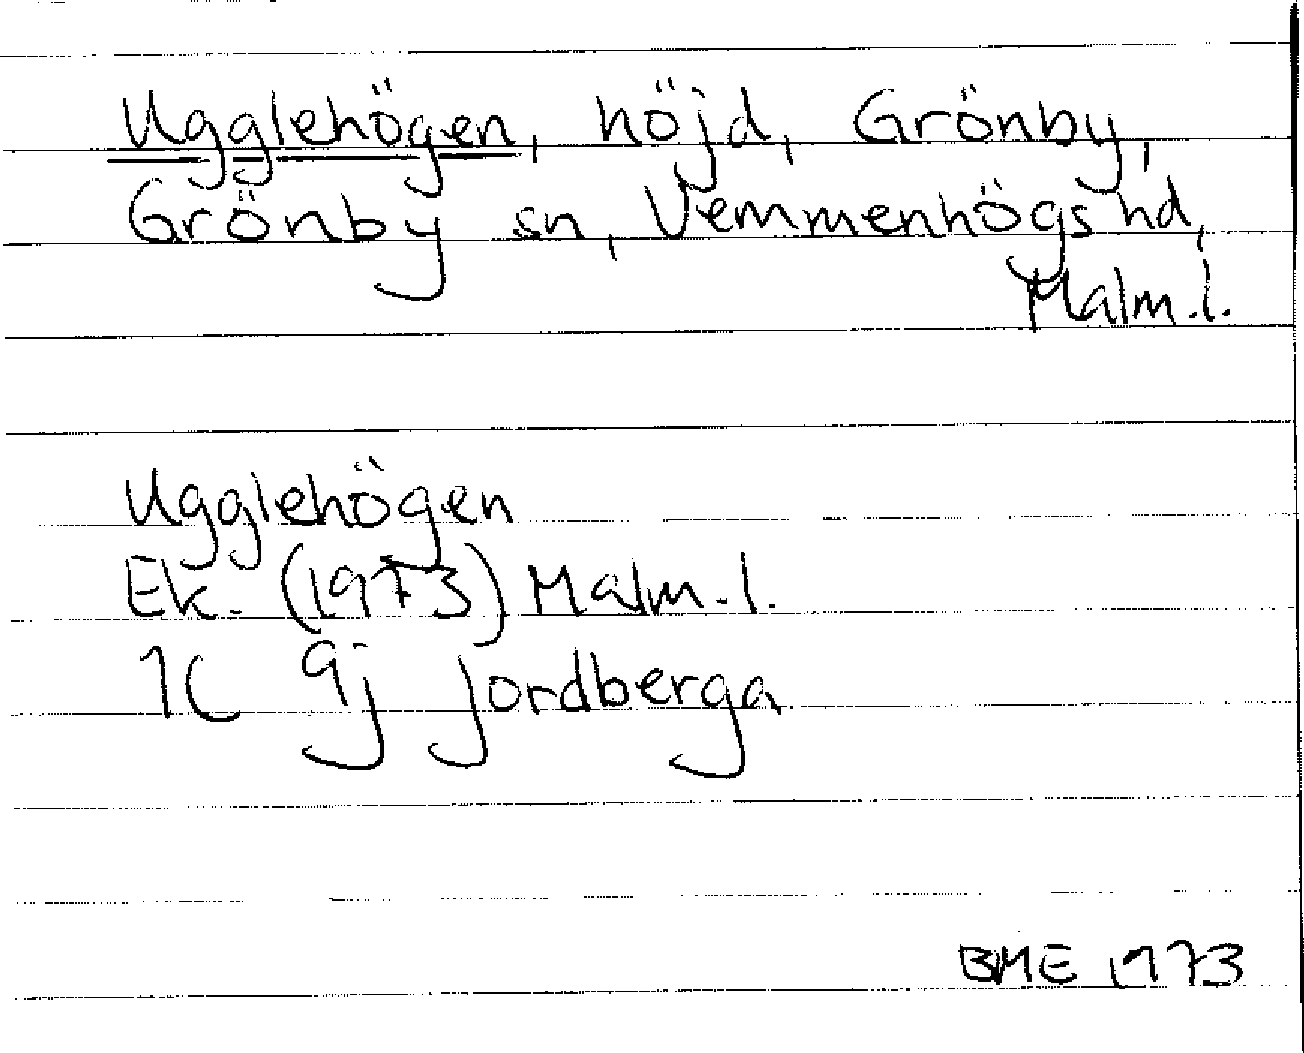 Ugglehögen, höjd, Grönby,
Grönby sn, Vemmenhögs hd,
Malm.l.
Ugglehögen
Ek. (1973) Malm.l.
1C 9j Jordberga
BME 1973